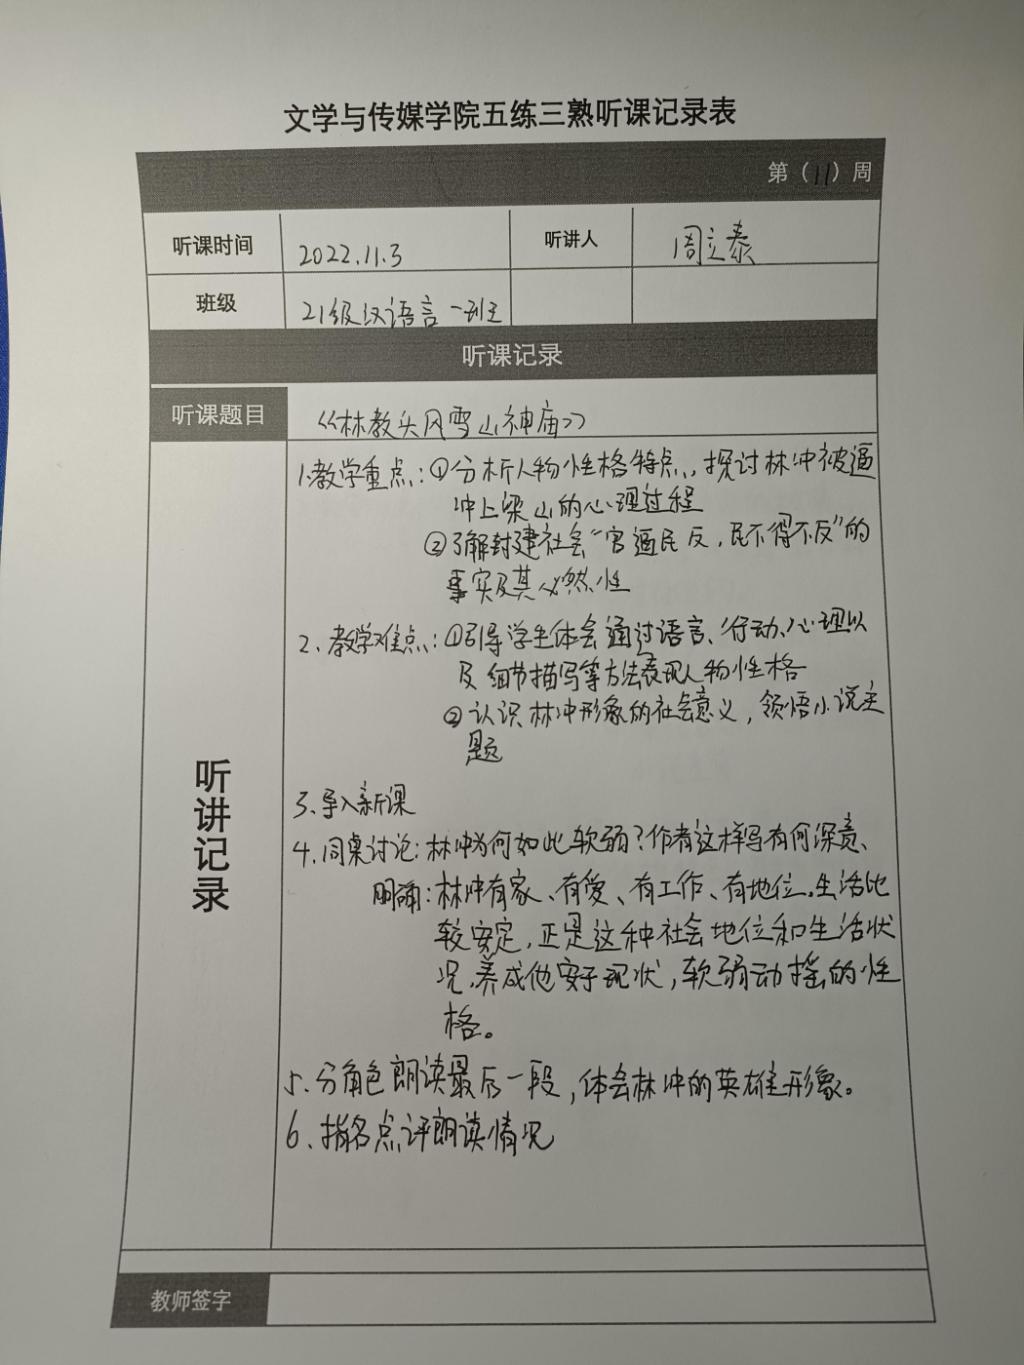 文学与传媒学院五练三熟听课记录表
第（11）周
听课时间 2022.11.3 听讲人 周立泰
班级 21级汉语言一班
听课记录
听课题目 《林教头风雪山神庙》
听讲记录
1.教学重点：①分析人物性格特点，探讨林冲被逼
冲上梁山的心理过程
②了解封建社会“官逼民反，民不得不反”的
事实及其必然性
2、教学难点：①引导学生体会通过语言、行动、心理以
及细节描写等方法表现人物性格
②认识林冲形象的社会意义，领悟小说主
题
3、导入新课
4、同桌讨论：林冲为何如此软弱？作者这样写有何深意、
明确：林冲有家、有爱、有工作、有地位。生活比
较安定，正是这种社会地位和生活状
况，养成他安于现状，软弱动摇的性
格。
5、分角色朗读最后一段，体会林冲的英雄形象。
6、指名点评朗读情况
教师签字